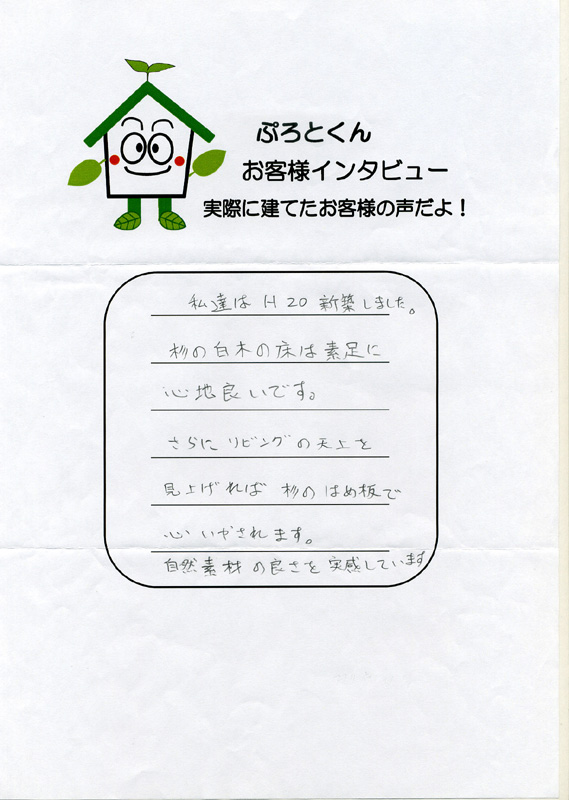 ぷろとくん
お客様インタビュー
実際に建てたお客様の声だよ！
私達は H20 新築しました。
杉の白木の床は素足に
心地良いです。
さらに リビングの天上を
見上げれば 杉の はめ板で
心 いやされます。
自然素材の良さを実感しています